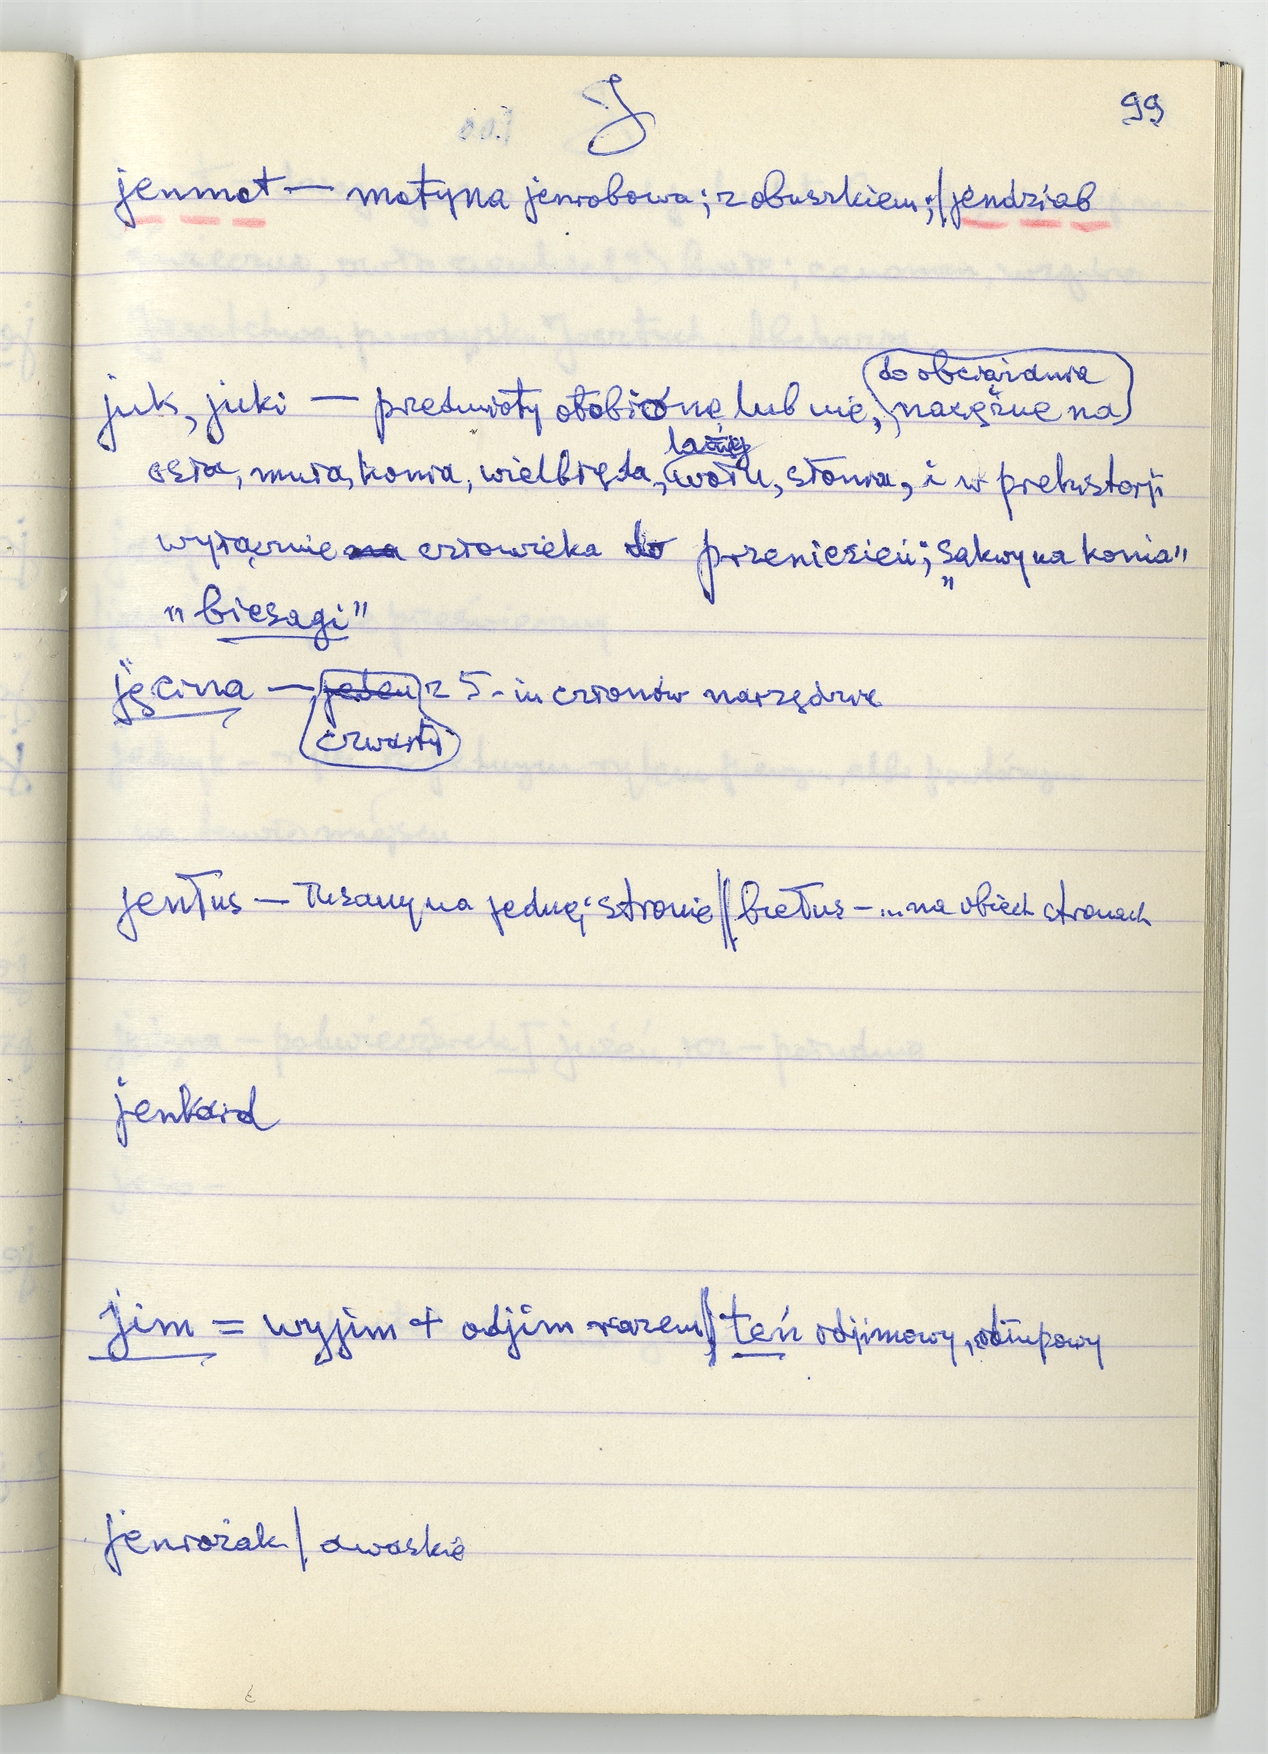 J
99
jenmot — motyna jenrobowa; z obuszkiem; / jendziab
do obciążania
juk, juki — przedmioty otobione lub nie, naręźne na
osła, muła, konia, wielbłąda, wołu, słonia, i w prehistorji
wyłącznie na człowieka do przeniesień; „sakwy na konia"
„biesagi"
jęcina — jeden z 5-iu członów narzędzie
czwarty
jentus — na jednej stronie // bietus — ... na obiech stronach
jenkard
jim = wyjim + odjim razem // teń odjimowy, odłupowy
jenrożak / dwoskie